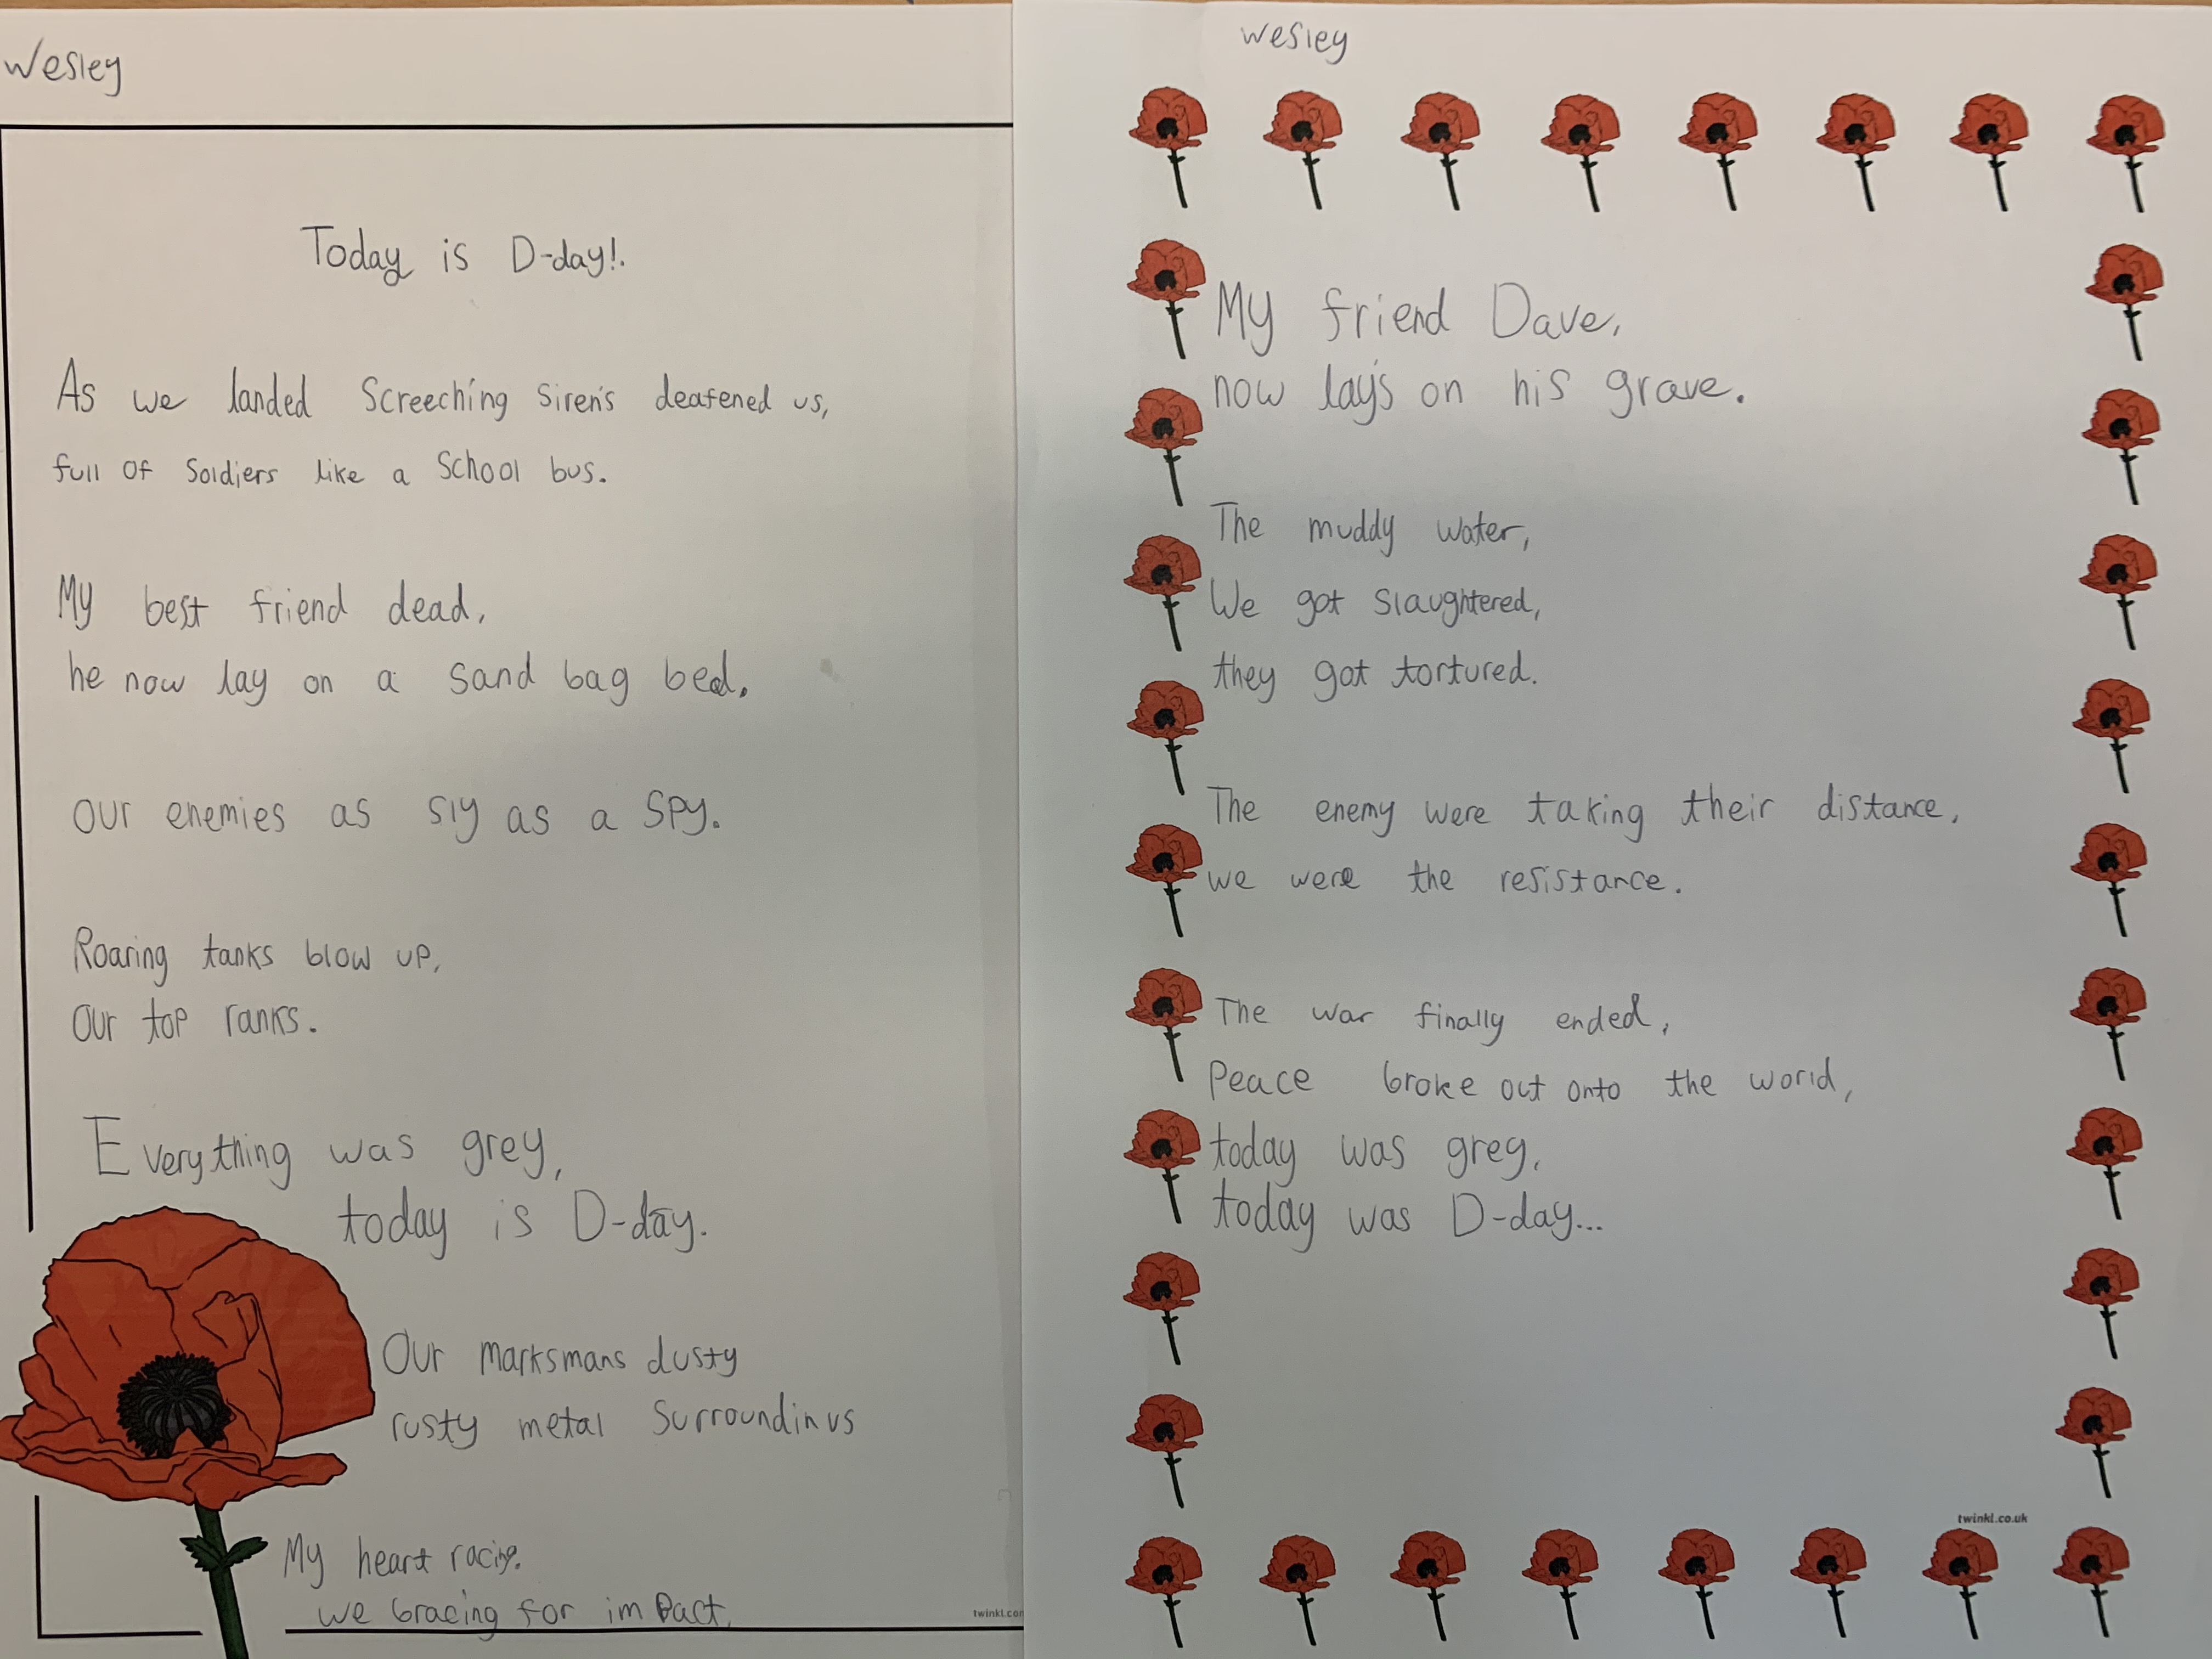 Wesley
Today is D-day!.
As we landed Screeching Siren's deafened us,
full of Soldiers like a School bus.
My best friend dead,
he now lay on a sand bag bed.
Our enemies as sly as a spy.
Roaring tanks blow up,
Our top ranks.
Everything was grey,
today is D-day.
Our marksmans dusty
rusty metal surroundin us
My heart racing.
we bracing for impact.
twinkl.com
wesley
My friend Dave,
now lay's on his grave.
The muddy water,
We got slaughtered,
they got tortured.
The enemy were taking their distance,
we were the resistance.
The war finally ended,
Peace broke out onto the world,
today was grey,
today was D-day...
twinkl.co.uk